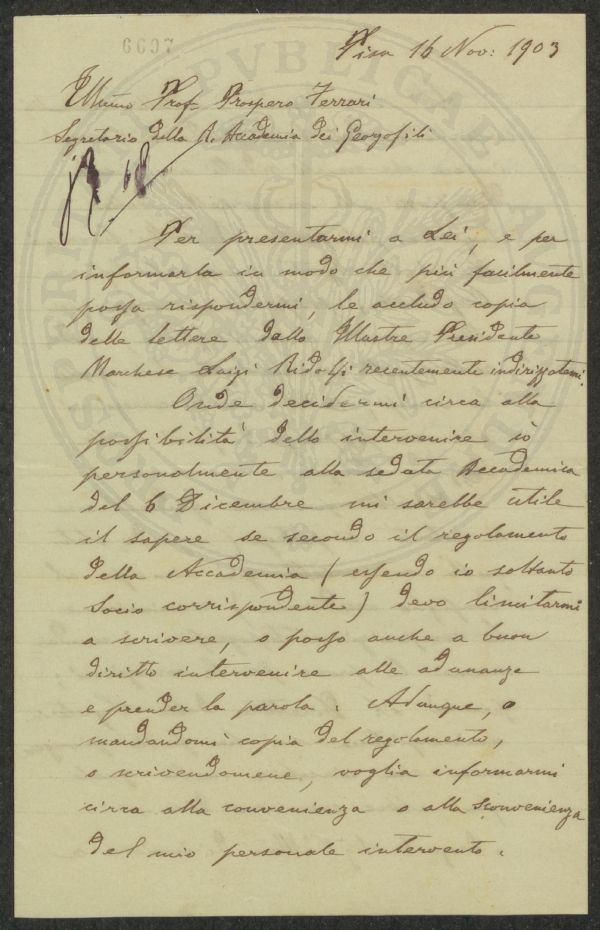 6607
Pisa 16 Nov: 1903
Illmo Prof. Prospero Ferrari
Segretario della R. Accademia dei Georgofili
Per presentarmi a Lei, e per
informarla in modo che più facilmente
possa rispondermi, le accludo copia
delle lettere dallo Illustre Presidente
Marchese Luigi Ridolfi recentemente indirizzatami.
Onde decidermi circa alla
possibilità dello intervenire io
personalmente alla seduta Accademica
del 6 Dicembre mi sarebbe utile
il sapere se secondo il regolamento
della Accademia (essendo io soltanto
Socio corrispondente) devo limitarmi
a scrivere, o posso anche a buon
diritto intervenire alle adunanze
e prender la parola. Adunque, o
mandandomi copia del regolamento,
o scrivendomene, voglia informarmi
circa alla convenienza o alla sconvenienza
del mio personale intervento.